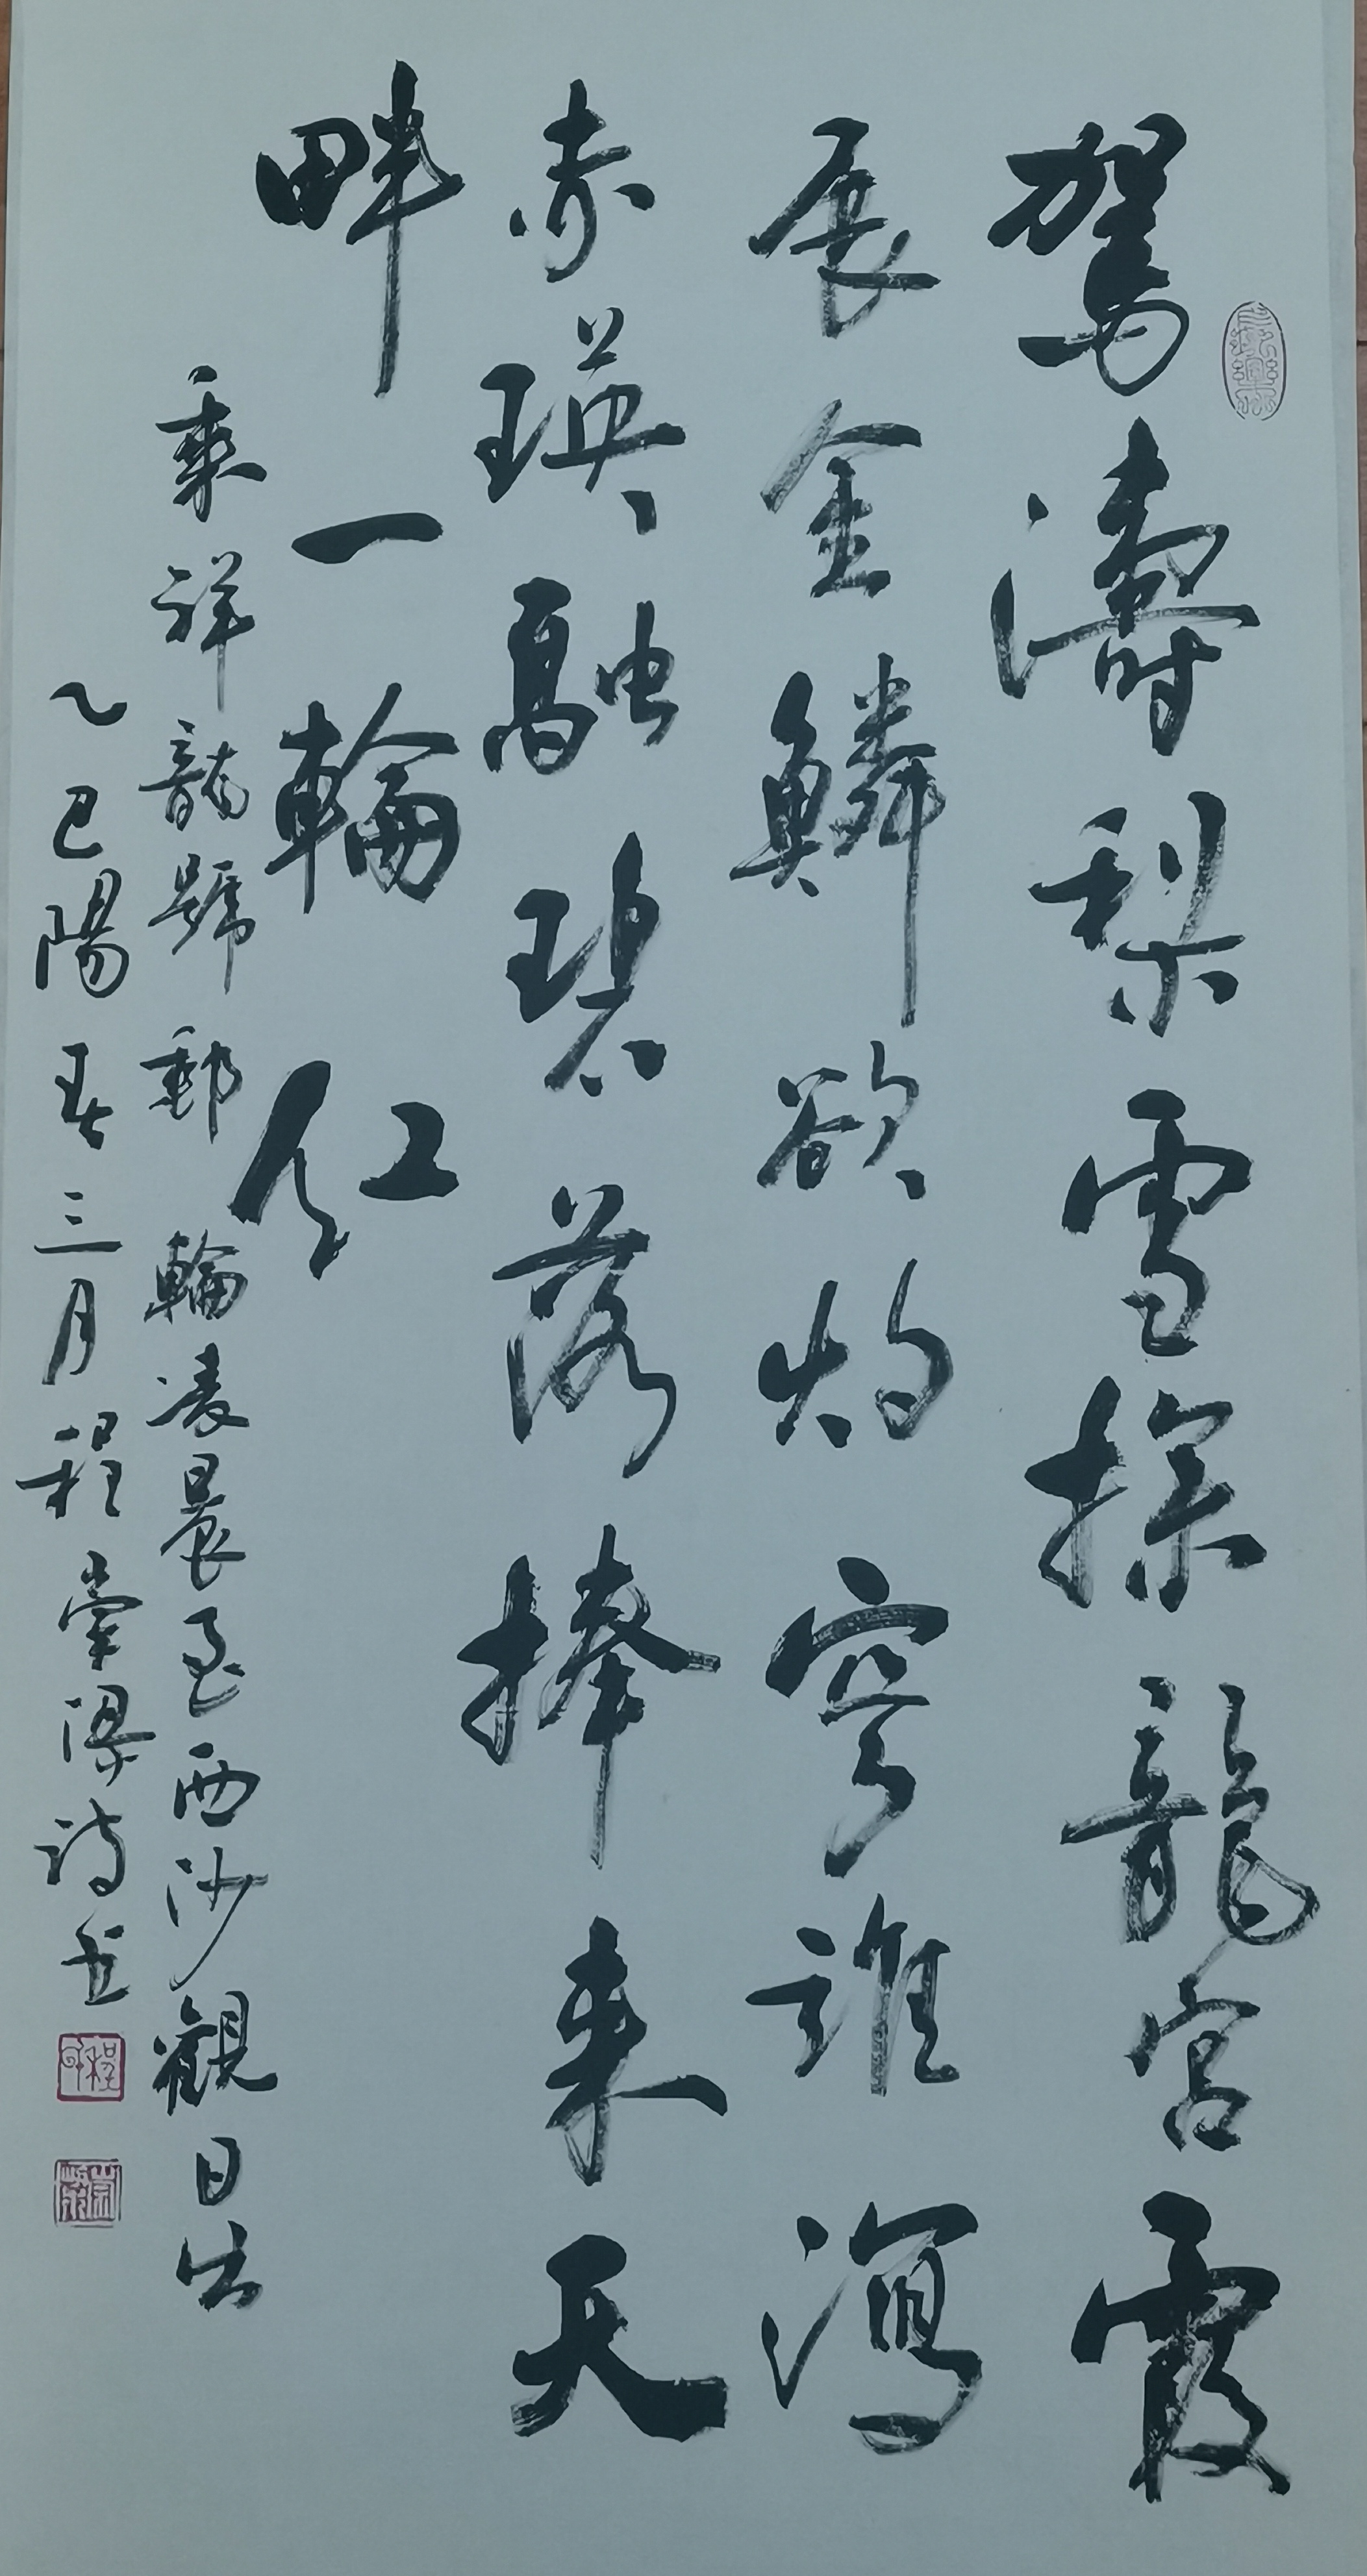 駕濤梨雪探龍宮霞
展金鱗欲灼穹誰瀉
赤瑛融碧落捧來天
畔一輪紅
乘祥龍號郵輪凌晨至西沙觀日出
乙巳陽春三月程崇梁詩书